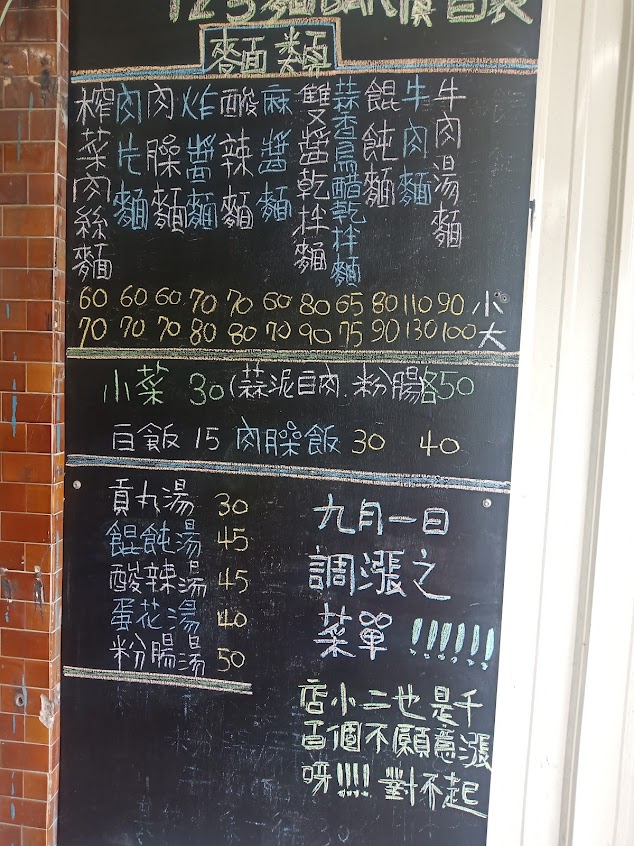 麵類
牛肉湯麵
牛肉麵
餛飩麵
蒜香烏醋乾拌麵
雙醬乾拌麵
麻醬麵
酸辣麵
炸醬麵
肉臊麵
肉片麵
榨菜肉絲麵
60 60 60 70 70 60 80 65 80 110 90 小
70 70 70 80 80 70 90 75 90 130 100 大
小菜 30 (蒜泥白肉.粉腸各50
白飯 15 肉臊飯 30 40
貢丸湯 30
餛飩湯 45
酸辣湯 45
蛋花湯 40
粉腸湯 50
九月一日
調漲之
菜單 !!!!!!
店小二也是千
百個不願意漲
呀!!!! 對不起